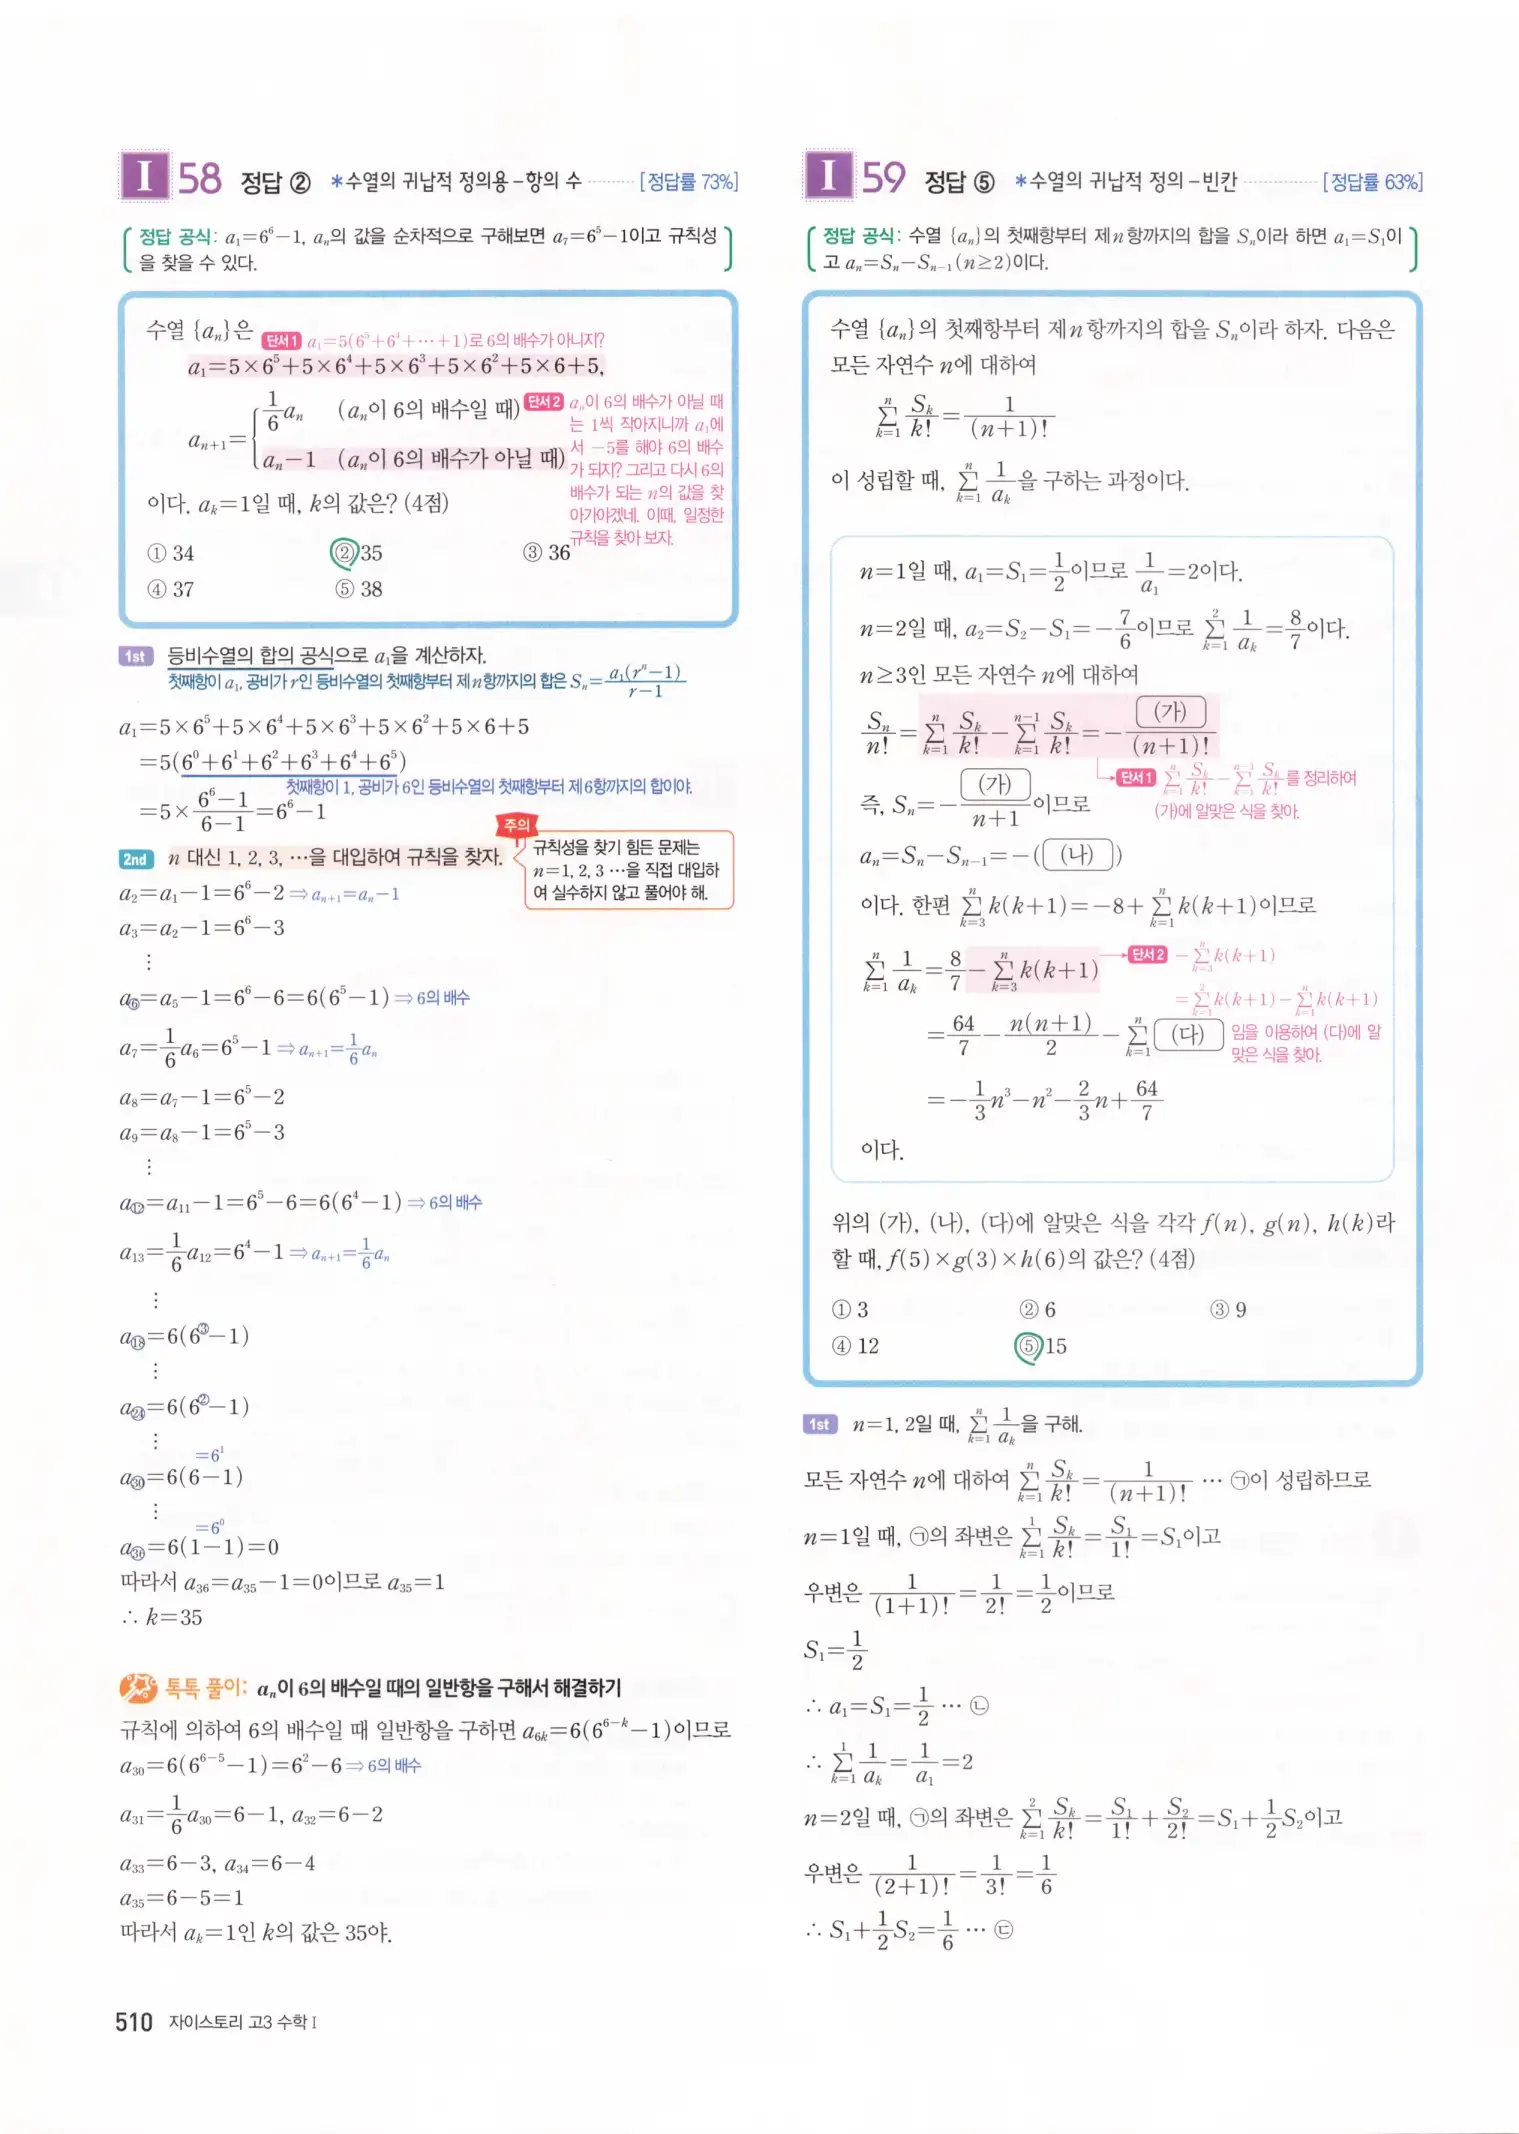 I 58 정답 ② *수열의 귀납적 정의용-항의 수 ········ [정답률 73%]
정답 공식: a₁=6⁶-1, aₙ의 값을 순차적으로 구해보면 a₇=6⁵-1이고 규칙성
을 찾을 수 있다.
수열 {aₙ}은 단서1 a₁=5(6⁵+6⁴+⋯+1)로 6의 배수가 아니지?
a₁=5×6⁵+5×6⁴+5×6³+5×6²+5×6+5,
aₙ₊₁={ 1/6 aₙ (aₙ이 6의 배수일 때)
aₙ-1 (aₙ이 6의 배수가 아닐 때)
단서2 aₙ이 6의 배수가 아닐 때
는 1씩 작아지니까 a₁에
서 -5를 해야 6의 배수
가 되지? 그리고 다시 6의
배수가 되는 n의 값을 찾
아가야겠네. 이때, 일정한
규칙을 찾아 보자.
이다. aₖ=1일 때, k의 값은? (4점)
① 34 ② 35 ③ 36
④ 37 ⑤ 38
1st 등비수열의 합의 공식으로 a₁을 계산하자.
첫째항이 a₁, 공비가 r인 등비수열의 첫째항부터 제n항까지의 합은 Sₙ=a₁(rⁿ-1)/(r-1)
a₁=5×6⁵+5×6⁴+5×6³+5×6²+5×6+5
=5(6⁰+6¹+6²+6³+6⁴+6⁵)
첫째항이 1, 공비가 6인 등비수열의 첫째항부터 제6항까지의 합이야.
=5×(6⁶-1)/(6-1)=6⁶-1
2nd n 대신 1, 2, 3, ⋯을 대입하여 규칙을 찾자.
주의
규칙성을 찾기 힘든 문제는
n=1, 2, 3 ⋯을 직접 대입하
여 실수하지 않고 풀어야 해.
a₂=a₁-1=6⁶-2 ⇒ aₙ₊₁=aₙ-1
a₃=a₂-1=6⁶-3
⋮
a₆=a₅-1=6⁶-6=6(6⁵-1) ⇒ 6의 배수
a₇=1/6 a₆=6⁵-1 ⇒ aₙ₊₁=1/6 aₙ
a₈=a₇-1=6⁵-2
a₉=a₈-1=6⁵-3
⋮
a₁₂=a₁₁-1=6⁵-6=6(6⁴-1) ⇒ 6의 배수
a₁₃=1/6 a₁₂=6⁴-1 ⇒ aₙ₊₁=1/6 aₙ
⋮
a₁₈=6(6³-1)
⋮
a₂₄=6(6²-1)
⋮
=6¹
a₃₀=6(6-1)
⋮
=6⁰
a₃₆=6(1-1)=0
따라서 a₃₆=a₃₅-1=0이므로 a₃₅=1
∴ k=35
톡톡 풀이: aₙ이 6의 배수일 때의 일반항을 구해서 해결하기
규칙에 의하여 6의 배수일 때 일반항을 구하면 a₆ₖ=6(6⁶⁻ᵏ-1)이므로
a₃₀=6(6⁶⁻⁵-1)=6²-6 ⇒ 6의 배수
a₃₁=1/6 a₃₀=6-1, a₃₂=6-2
a₃₃=6-3, a₃₄=6-4
a₃₅=6-5=1
따라서 aₖ=1인 k의 값은 35야.
510 자이스토리 고3 수학 I
I 59 정답 ⑤ *수열의 귀납적 정의-빈칸 ············ [정답률 63%]
정답 공식: 수열 {aₙ}의 첫째항부터 제n항까지의 합을 Sₙ이라 하면 a₁=S₁이
고 aₙ=Sₙ-Sₙ₋₁(n≥2)이다.
수열 {aₙ}의 첫째항부터 제n항까지의 합을 Sₙ이라 하자. 다음은
모든 자연수 n에 대하여
∑(k=1→n) Sₖ/k!=1/(n+1)!
이 성립할 때, ∑(k=1→n) 1/aₖ을 구하는 과정이다.
n=1일 때, a₁=S₁=1/2이므로 1/a₁=2이다.
n=2일 때, a₂=S₂-S₁=-7/6이므로 ∑(k=1→2) 1/aₖ=8/7이다.
n≥3인 모든 자연수 n에 대하여
Sₙ/n!=∑(k=1→n) Sₖ/k!-∑(k=1→n-1) Sₖ/k!=-(가)/(n+1)!
단서1 ∑(k=1→n) Sₖ/k!-∑(k=1→n-1) Sₖ/k!를 정리하여
(가)에 알맞은 식을 찾아.
즉, Sₙ=-(가)/(n+1)이므로
aₙ=Sₙ-Sₙ₋₁=-( (나) )
이다. 한편 ∑(k=3→n) k(k+1)=-8+∑(k=1→n) k(k+1)이므로
∑(k=1→n) 1/aₖ=8/7-∑(k=3→n) k(k+1)
단서2 -∑(k=3→n) k(k+1)
=∑(k=1→2) k(k+1)-∑(k=1→n) k(k+1)
임을 이용하여 (다)에 알
맞은 식을 찾아.
=64/7-n(n+1)/2-∑(k=1→n) (다)
=-1/3 n³-n²-2/3 n+64/7
이다.
위의 (가), (나), (다)에 알맞은 식을 각각 f(n), g(n), h(k)라
할 때, f(5)×g(3)×h(6)의 값은? (4점)
① 3 ② 6 ③ 9
④ 12 ⑤ 15
1st n=1, 2일 때, ∑(k=1→n) 1/aₖ을 구해.
모든 자연수 n에 대하여 ∑(k=1→n) Sₖ/k!=1/(n+1)! ⋯ ㉠이 성립하므로
n=1일 때, ㉠의 좌변은 ∑(k=1→1) Sₖ/k!=S₁/1!=S₁이고
우변은 1/(1+1)!=1/2!=1/2이므로
S₁=1/2
∴ a₁=S₁=1/2 ⋯ ㉡
∴ ∑(k=1→1) 1/aₖ=1/a₁=2
n=2일 때, ㉠의 좌변은 ∑(k=1→2) Sₖ/k!=S₁/1!+S₂/2!=S₁+1/2 S₂이고
우변은 1/(2+1)!=1/3!=1/6
∴ S₁+1/2 S₂=1/6 ⋯ ㉢